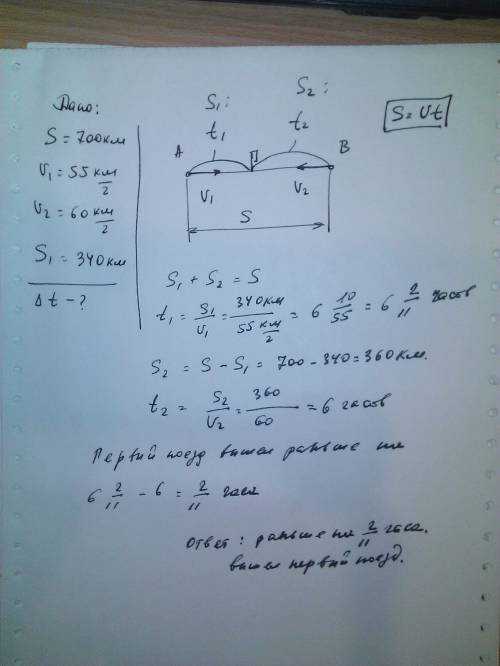 Дано:
S = 700 км
V₁ = 55 км/г
V₂ = 60 км/г
S₁ = 340 км
Δt - ?
S₁; S₂;
t₁ t₂
S = Vt
A П B
V₁ V₂
S
S₁ + S₂ = S
t₁ = S₁/V₁ = 340 км/55 км/г = 6 10/55 = 6 2/11 часов
S₂ = S - S₁ = 700 - 340 = 360 км.
t₂ = S₂/V₂ = 360/60 = 6 часов
Первий поезд вышел раньше на
6 2/11 - 6 = 2/11 часа
Ответ: раньше на 2/11 часа.
вышел первий поезд.